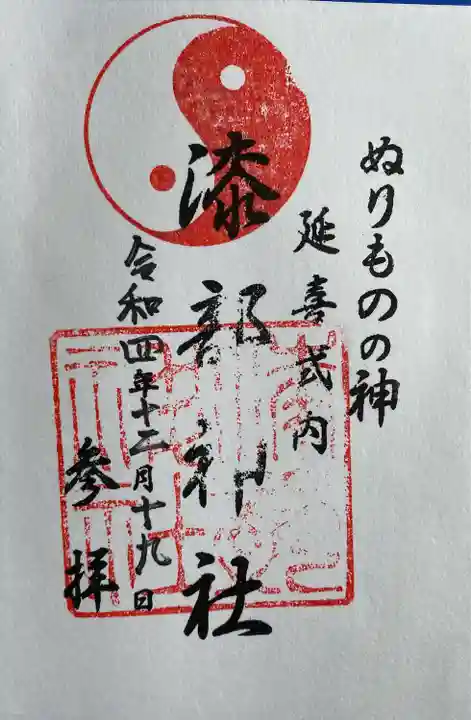 ぬりものの神
延喜式内
漆部神社
令和四年十二月十九日
参拝